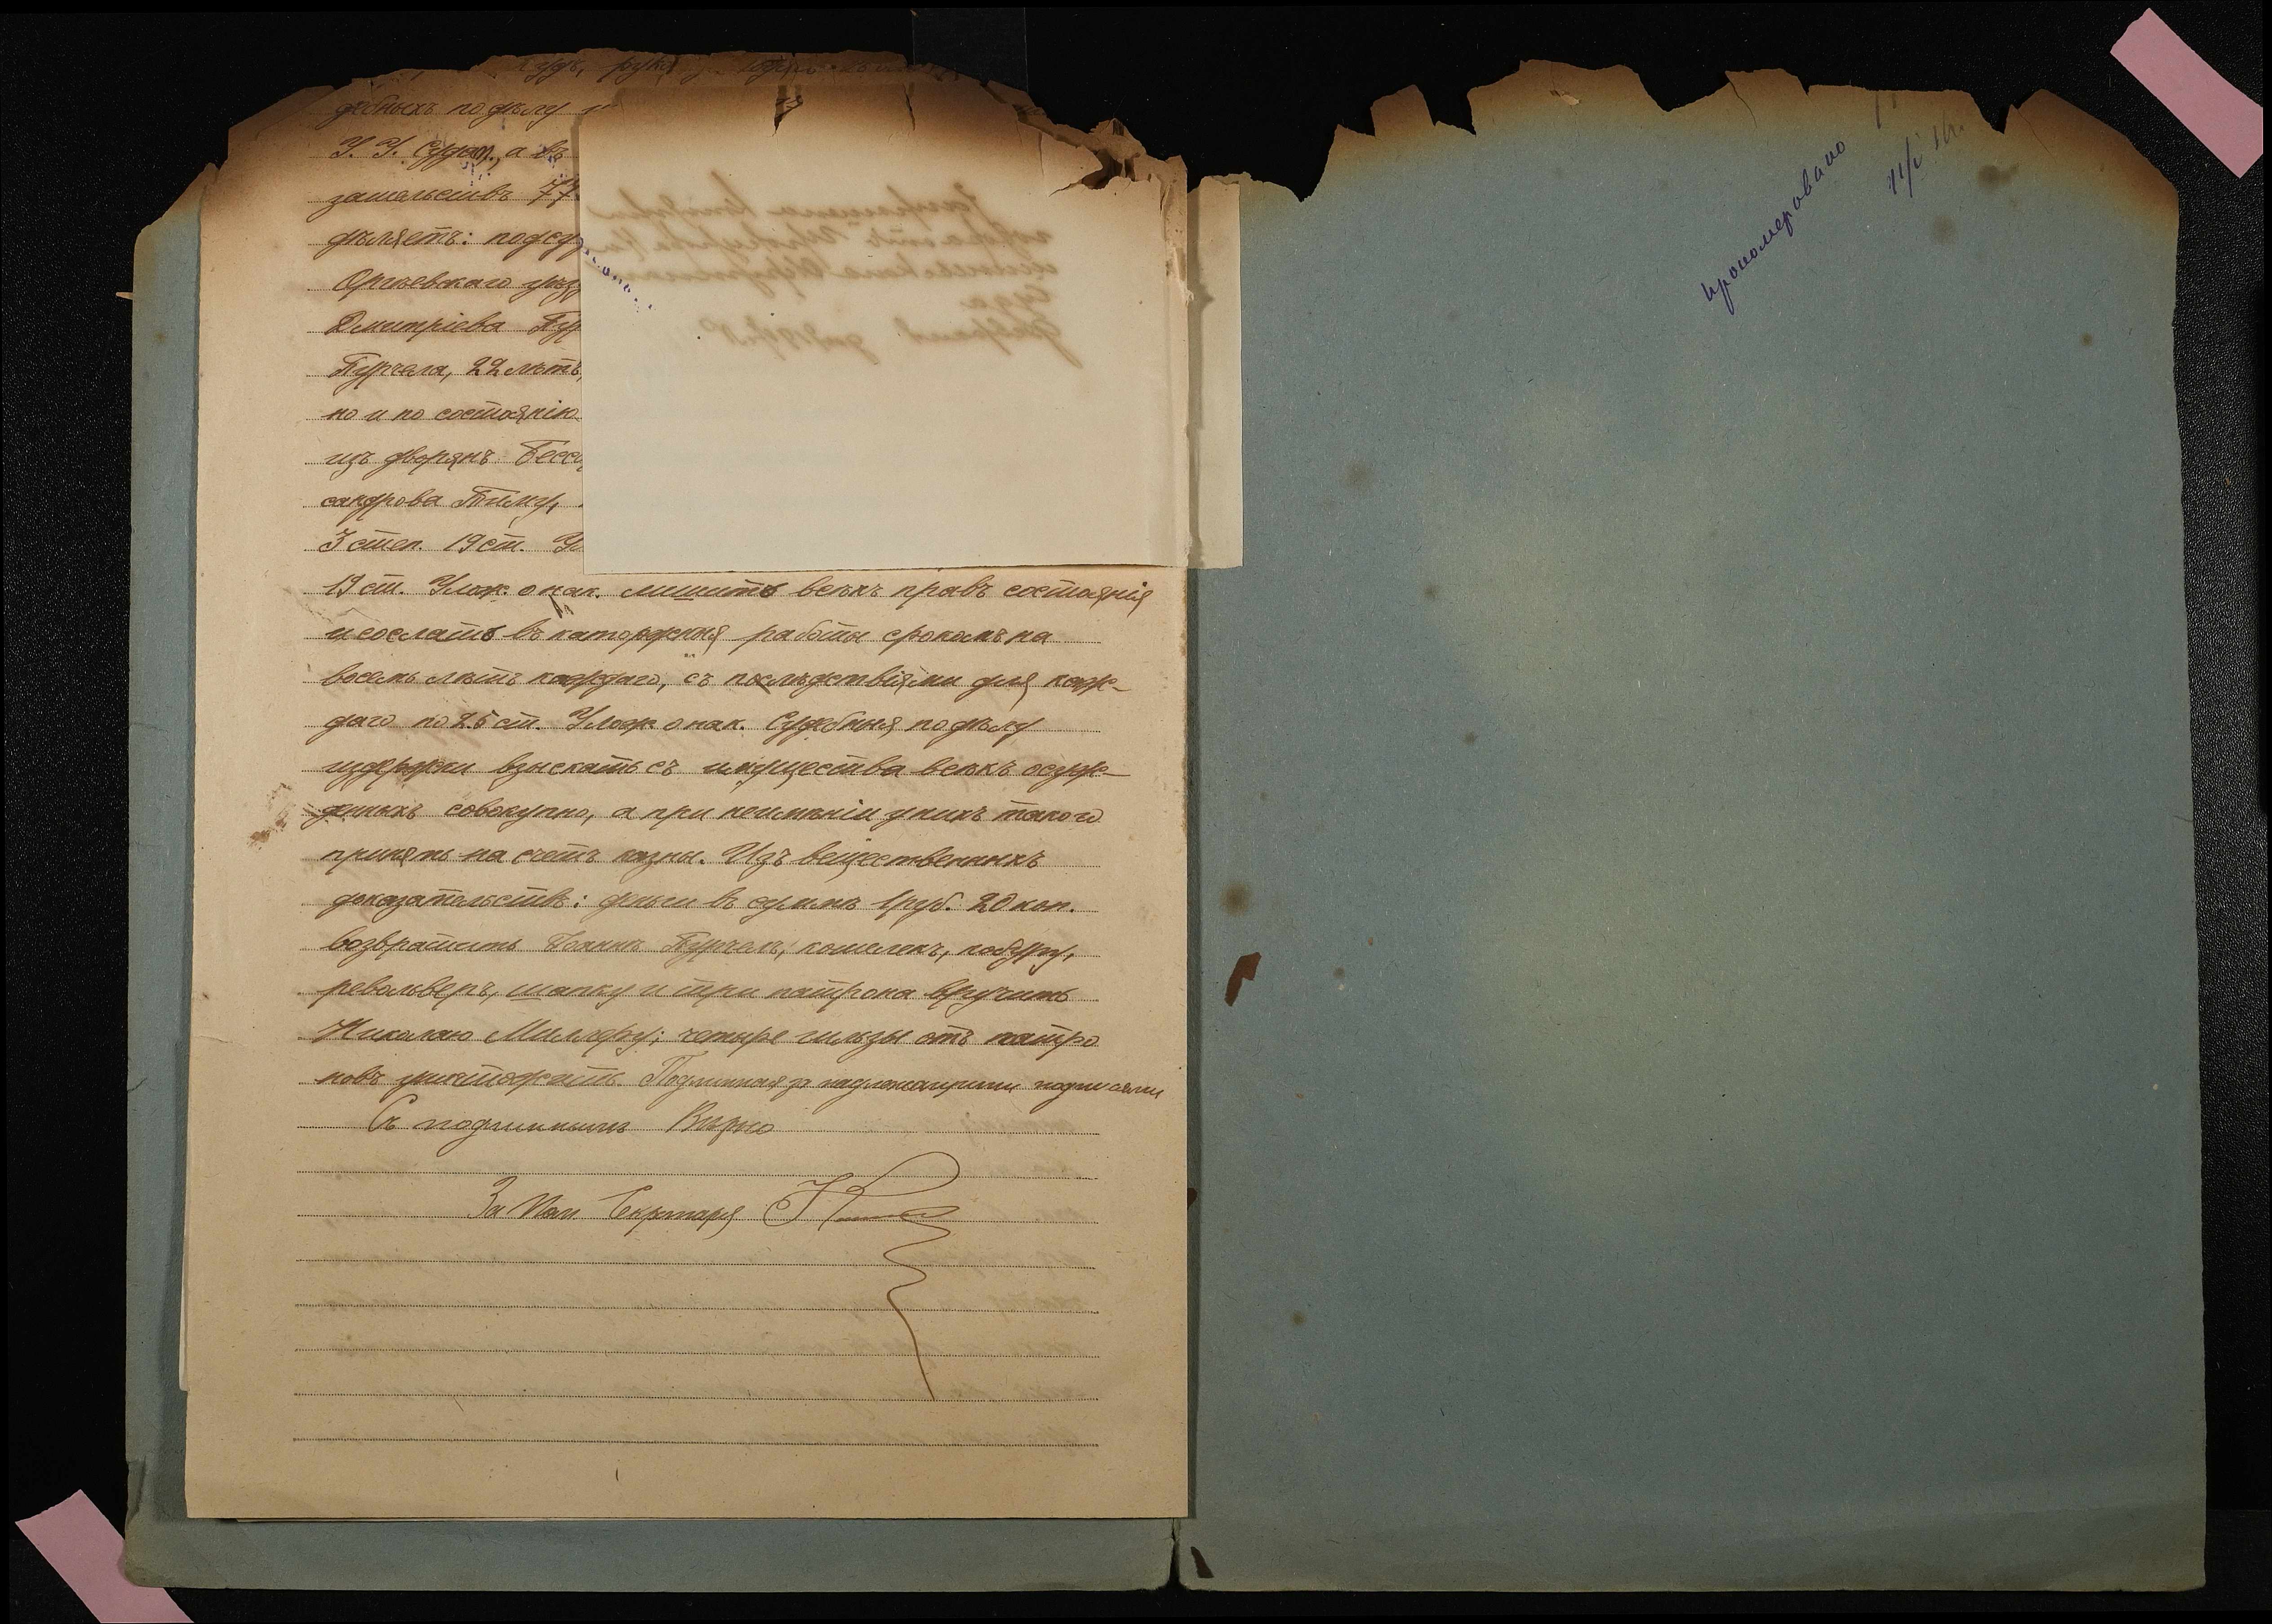 дебныхъ по дѣлу и
У. У. Судопр., а въ
зательствъ 77
дѣляетъ: подсу
Оргѣевскаго уѣз
Дмитріева Пур
Пурчела, 22 лѣтъ,
но и по состоянію
изъ дворянъ Бесса
сандрова Тимуш,
3 степ. 19 ст. Ул
19 ст. Улож. о нак. лишить всѣхъ правъ состоянія
и сослать въ каторжныя работы срокомъ на
восемь лѣтъ каждаго, съ послѣдствіями для каж-
даго по 25 ст. Улож. о нак. Судебныя по дѣлу
издержки взыскать съ имущества всѣхъ осуж-
денныхъ совокупно, а при неимѣніи у нихъ такого
принять на счетъ казны. Изъ вещественныхъ
доказательствъ: деньги въ суммѣ 1 руб. 20 коп.
возвратить Іоаннѣ Пурчелъ, кошелекъ, кобуру,
револьверъ, шапку и три патрона вручить
Николаю Миллеру; четыре гильзы отъ патро
новъ уничтожить. Подлинная за надлежащими подписями
Съ подлиннымъ Вѣрно
За Пом. Секретаря
пронумеровано